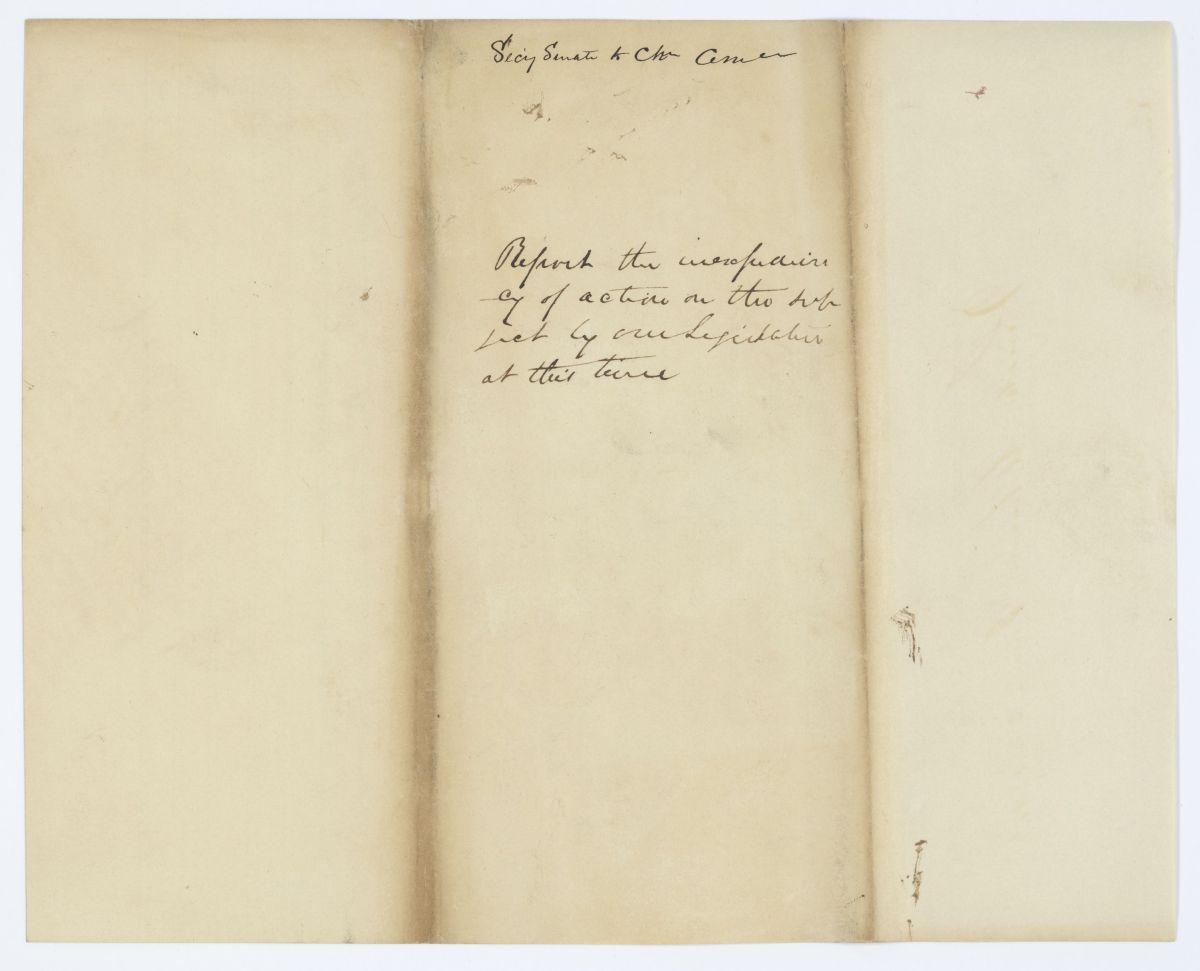 Secy Senate to Chn
Report the inexpedien
cy of action on the sub
ject by our Legislature
at this time